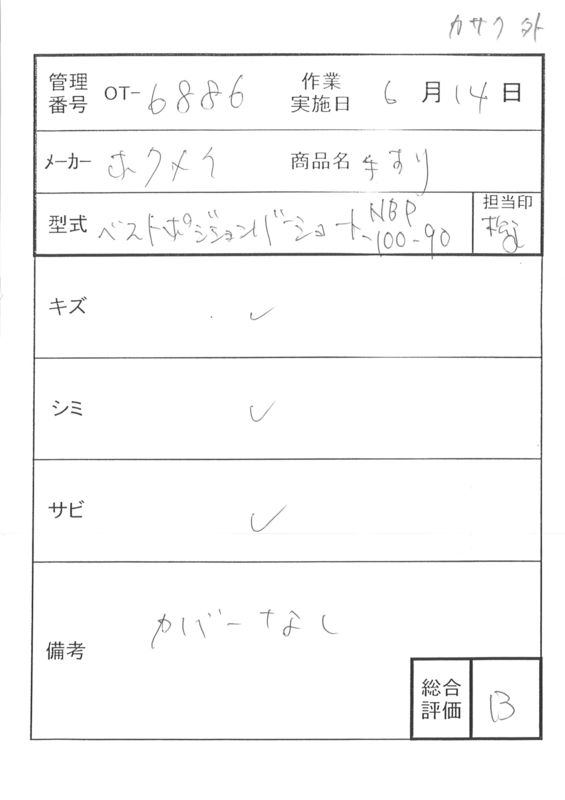 カサク外
管理番号 OT-6886 作業実施日 6月14日
メーカー ホクメイ 商品名 手すり
型式 ベストポジションバーショート NBP-100-90 担当印
キズ ✓
シミ ✓
サビ ✓
備考 カバーなし
総合評価 B